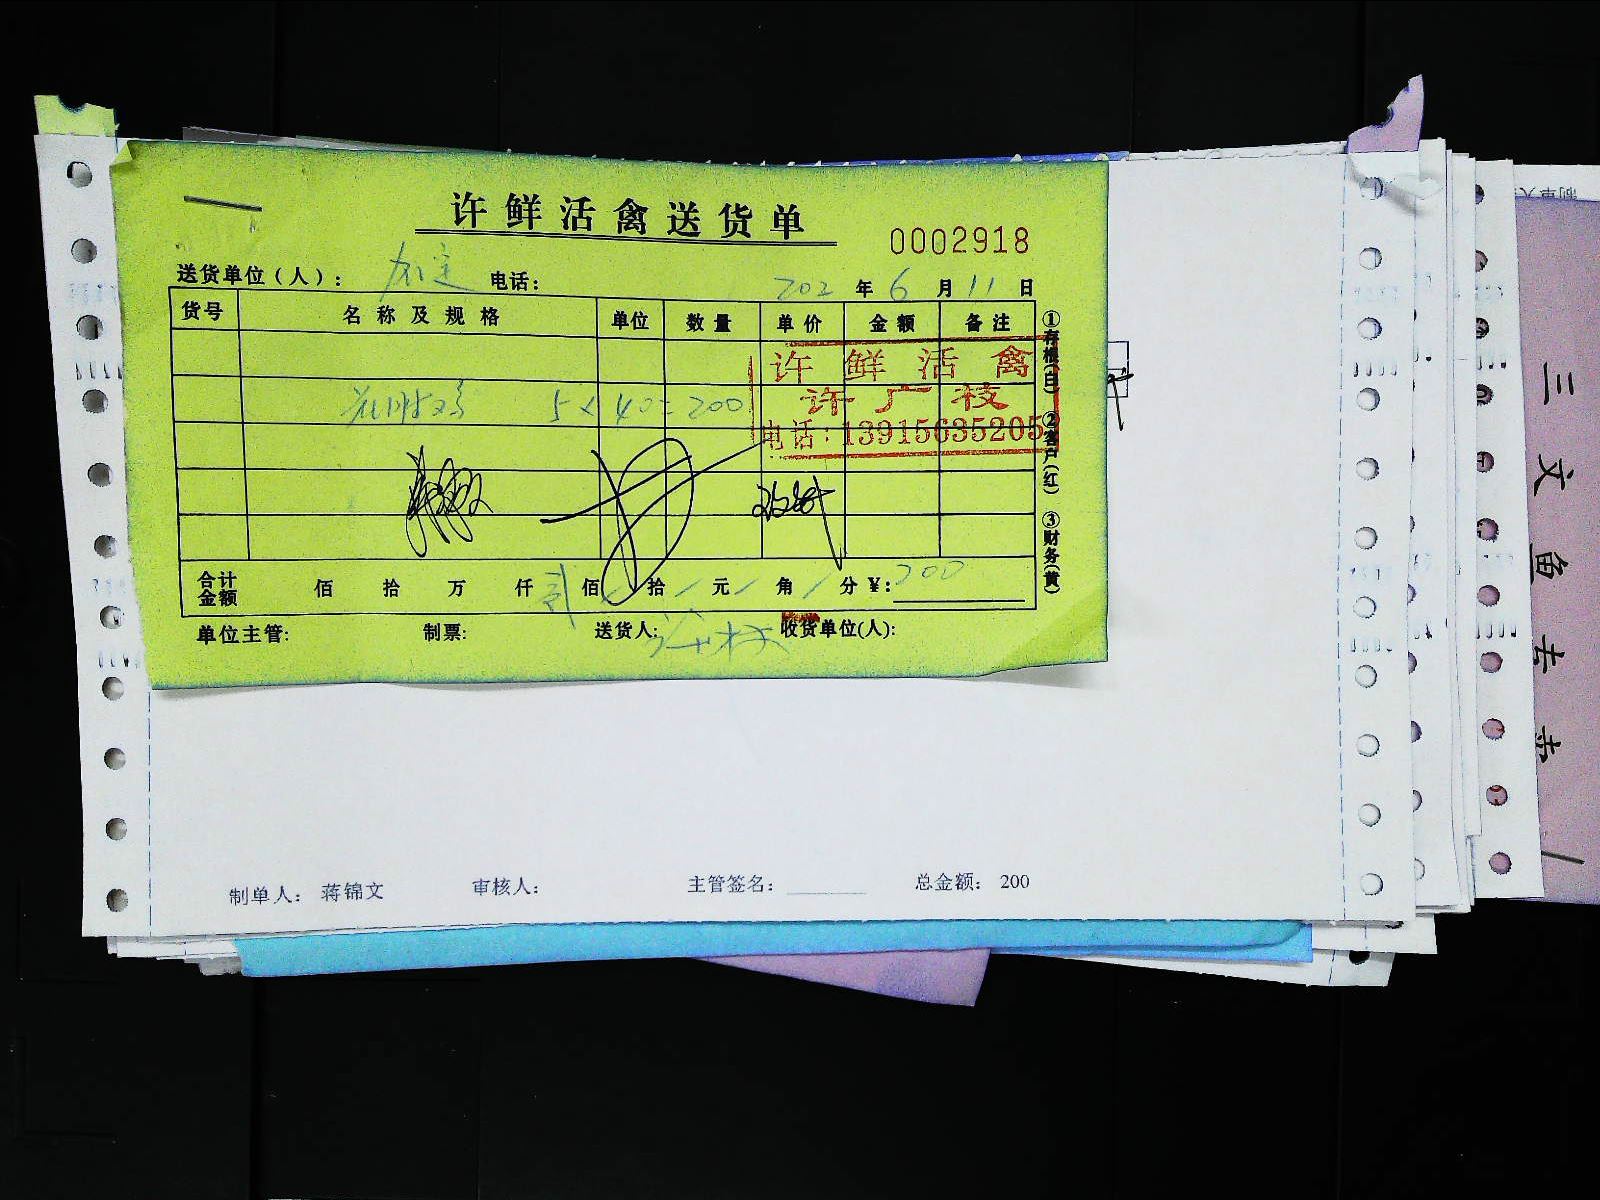 许鲜活禽送货单
0002918
送货单位(人): 电话: 202 年 6 月 11 日
货号 名称及规格 单位 数量 单价 金额 备注
许鲜活禽
许广枝
电话:13915635205
5×40=200
合计金额 佰 拾 万 仟 贰 佰 拾 元 角 分 ¥: 200
单位主管: 制票: 送货人: 收货单位(人):
①存根(白) ②客户(红) ③财务(黄)
制单人: 蒋锦文 审核人: 主管签名: 总金额: 200